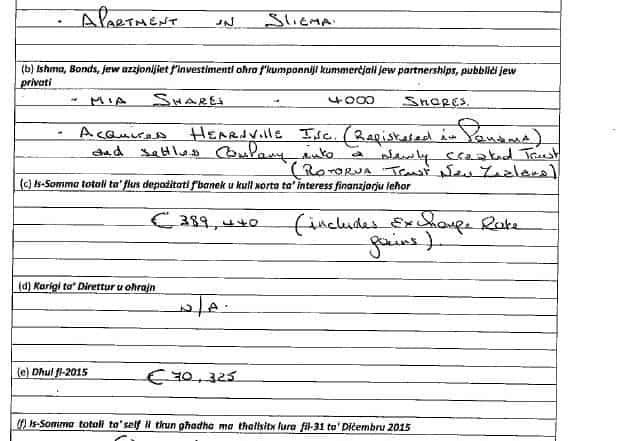 - APARTMENT IN SLIEMA.
(b) Ishma, Bonds, jew azzjonijiet f'investimenti ohra f'kumpanniji kummerċjali jew partnerships, pubbliċi jew
privati
- MIA SHARES - 4000 SHARES.
- ACQUIRED HEARNVILLE INC. (Registered in Panama)
and settled Company into a newly created Trust
(ROTORUA Trust New Zealand)
(c) Is-Somma totali ta' flus depożitati f'banek u kull xorta ta' interess finanzjarju iehor
€ 389,440 (includes Exchange Rate
gains).
(d) Karigi ta' Direttur u ohrajn
N/A.
(e) Dhul fl-2015 €70,325
(f) Is-Somma totali ta' self li tkun għadha ma thallsitx lura fil-31 ta' Diċembru 2015